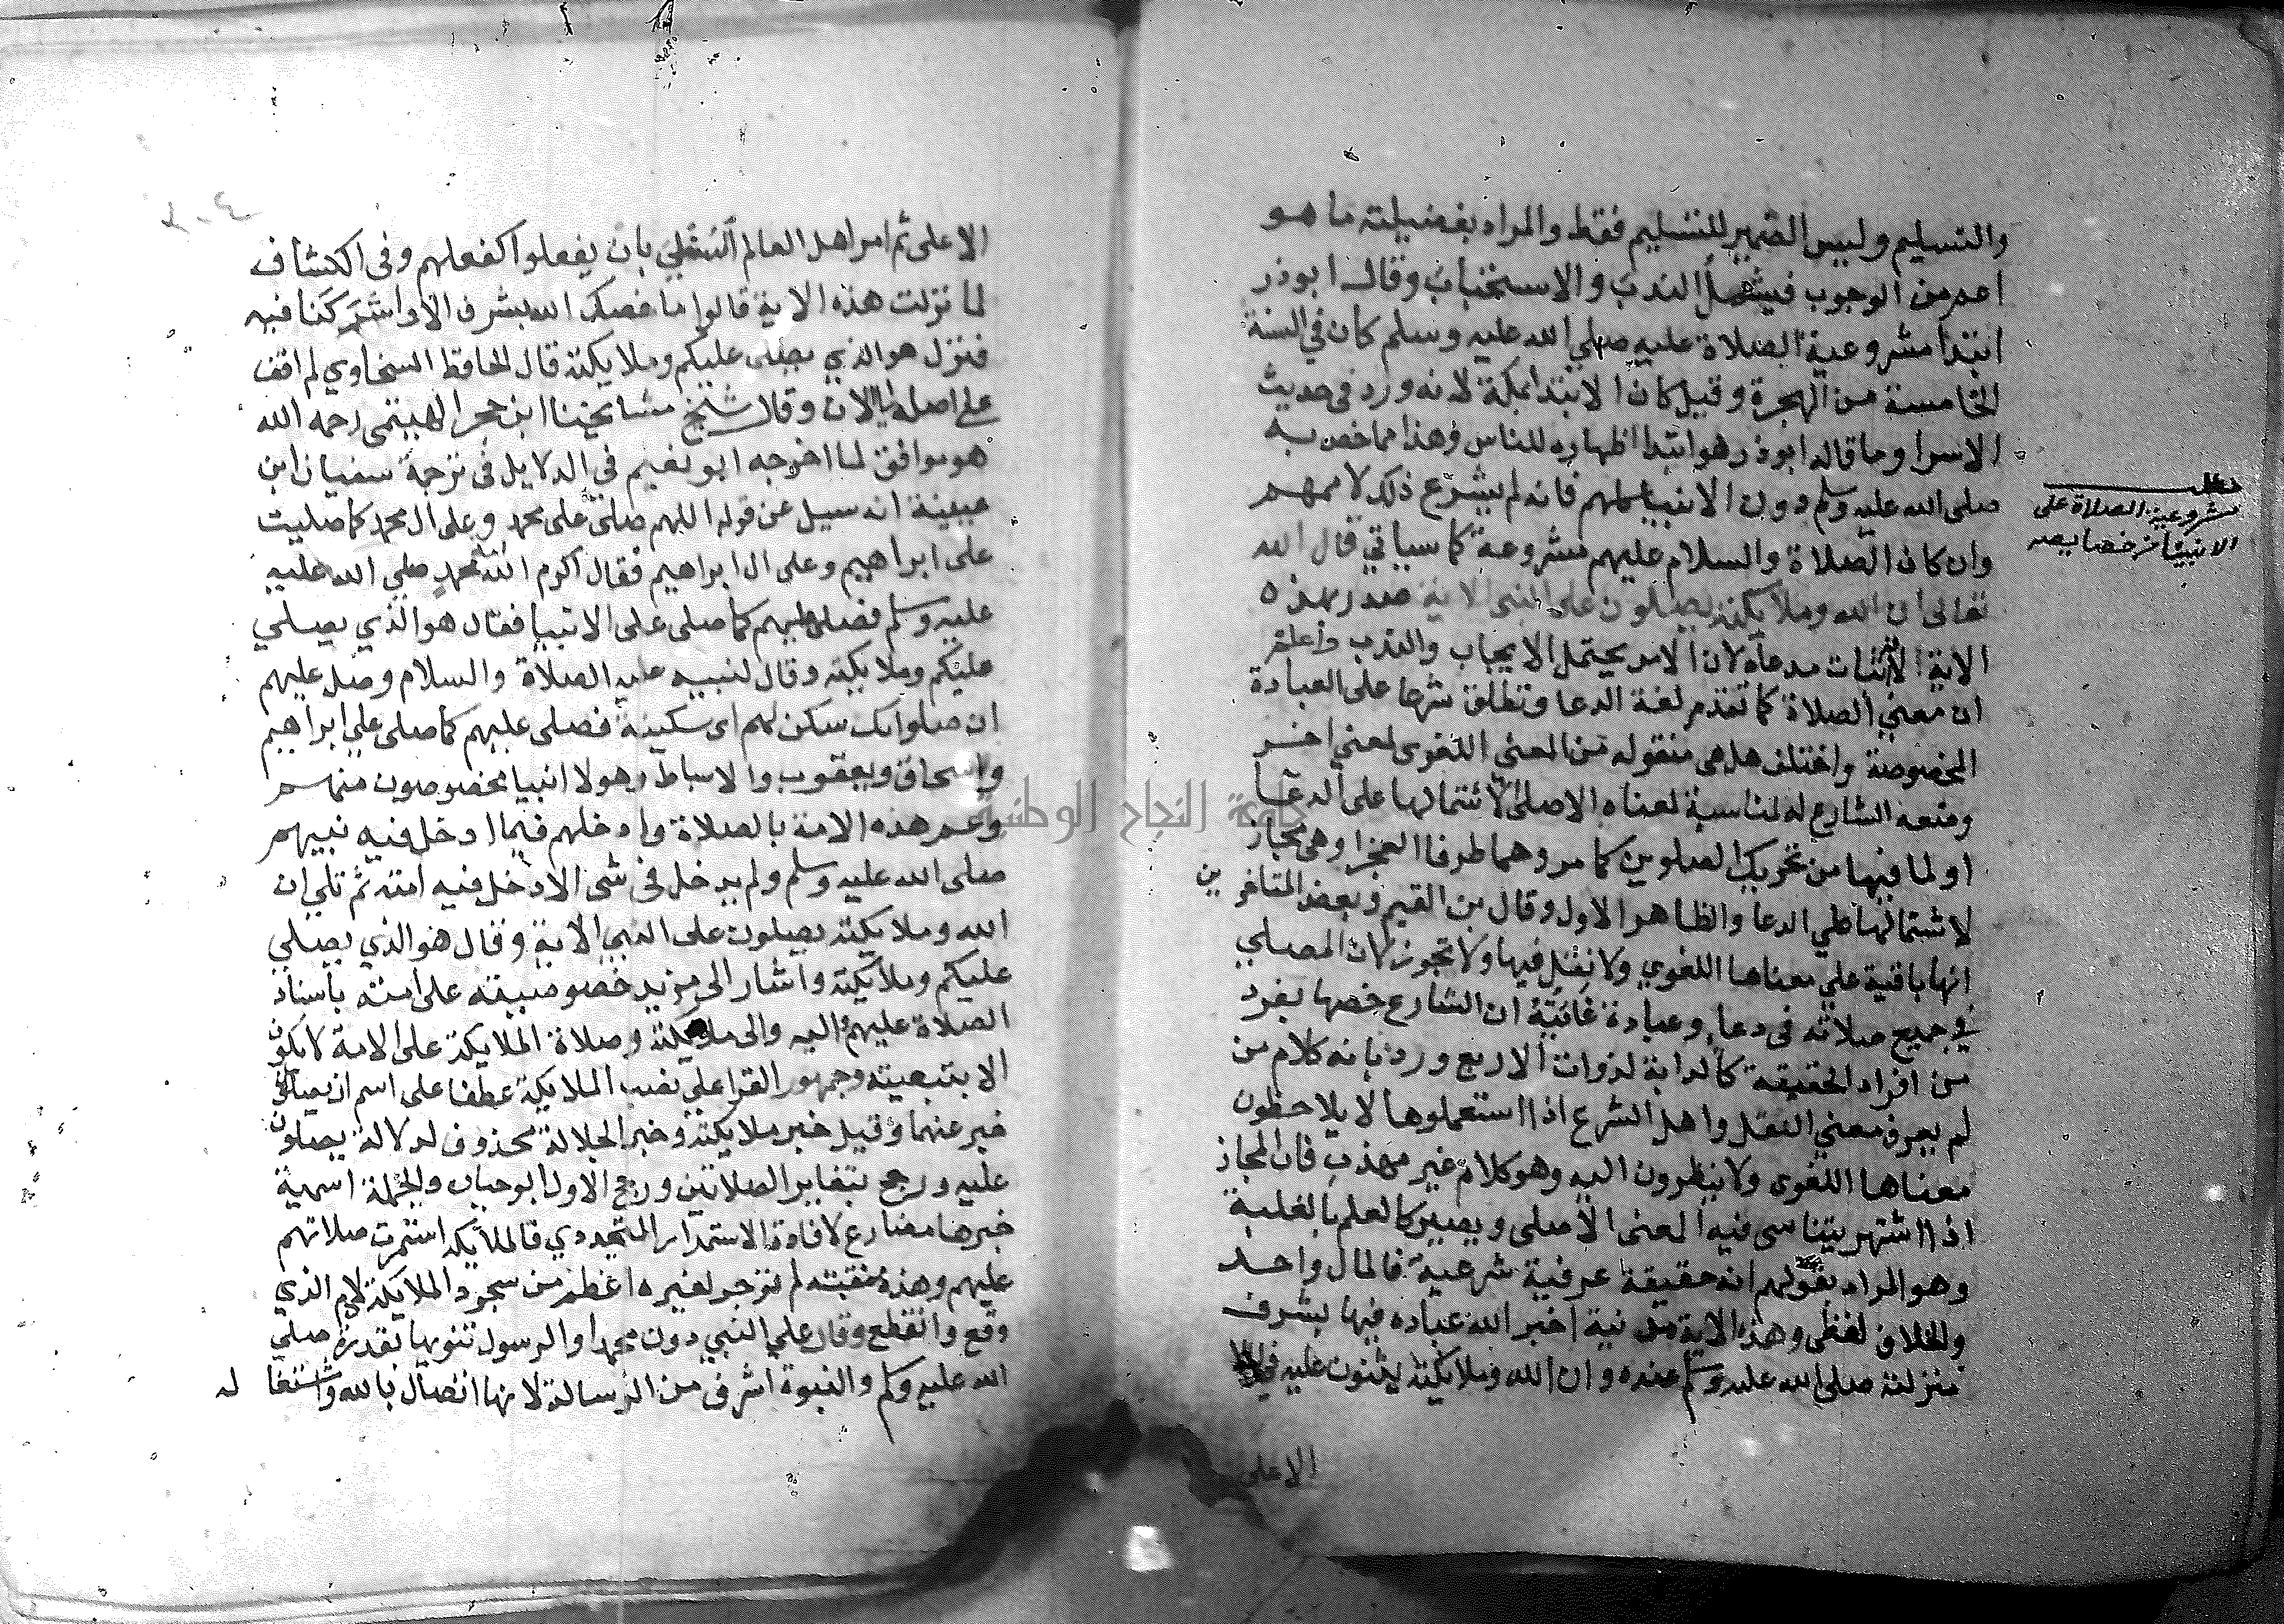 والتسليم وليس الضمير للتسليم فقط والمراد بفضيلته ما هو
اعم من الوجوب فيشمل الندب والاستحباب وقال ابوذر
ابتدا مشروعية الصلاة عليه صلى الله عليه وسلم كان في السنة
الخامسة من الهجرة وقيل كان الابتدا بمكة لانه ورد في حديث
الاسرا وما قاله ابوذر هو ابتدا اظهاره للناس وهذا مما خص به
صلى الله عليه وسلم دون الانبيا كلهم فانه لم يشرع ذلك لاممهم
وان كان الصلاة والسلام عليهم مشروعة كما سياتي قال الله
تعالى ان الله وملايكته يصلون على النبي الاية صدر بهذه
الاية لاثبات مدعاه لان الامر يحتمل الايجاب والندب واعلم
ان معنى الصلاة كما تقدم لغة الدعا وتطلق شرعا على العبادة
المخصوصة واختلف هل هي منقوله من المعنى اللغوى لمعنى اخر
وضعه الشارع له لمناسبة لمعناه الاصلى لاشتمالها على الدعا
او لما فيها من تحريك الصلوين كما مر وهما طرفا العجز او هى مجاز
لاشتمالها على الدعا والظاهر الاول وقال بن القيم وبعض المتاخرين
انها باقية على معناها اللغوي ولا نقل فيها ولا تجوز لان المصلى
في جميع صلاته في دعا وعبادة غايته ان الشارع خصها بفرد
من افراد الحقيقة كالدابة لذوات الاربع ورد بانه كلام من
لم يعرف معنى النقل واهل الشرع اذا استعملوها لا يلاحظون
معناها اللغوى ولا ينظرون اليه وهو كلام غير مهذب فان المجاز
اذا اشتهر يتناسى فيه المعنى الاصلى ويصير كالعلم بالغلبة
وهو المراد بقولهم انه حقيقة عرفية شرعية فالمال واحد
والخلاف لفظى وهذه الاية مدنية اخبر الله عباده فيها بشرف
منزلته صلى الله عليه وسلم عنده وان الله وملايكته يثنون عليه في
الاعلى
مشروعية الصلاة على
الانبيا من خصايصه
الاعلى ثم امر اهل العالم السفلي بان يفعلوا كفعلهم وفى الكشاف
لما نزلت هذه الاية قالوا ما خصك الله بشرف الا واشتركنا فيه
فنزل هو الذي يصلى عليكم وملايكته قال الحافظ السخاوي لم اقف
على اصله الى الان وقال شيخ مشايخنا ابن حجر الهيتمى رحمه الله
هو موافق لما اخرجه ابو نعيم في الدلايل في ترجمة سفيان ابن
عيينة انه سيل عن قوله اللهم صلى على محمد وعلى ال محمد كما صليت
على ابراهيم وعلى ال ابراهيم فقال اكرم الله امة محمد صلى الله عليه
عليه وسلم فصلى عليهم كما صلى على الانبيا فقال هو الذي يصلي
عليكم وملايكته وقال لنبيه عليه الصلاة والسلام وصل عليهم
ان صلواتك سكن لهم اى سكينة فصلى عليهم كما صلى على ابراهيم
واسحاق ويعقوب والاسباط وهولا انبيا مخصوصون منهم
وعم هذه الامة بالصلاة وادخلهم فيما ادخل فيه نبيهم
صلى الله عليه وسلم ولم يدخل في شى الا دخل فيه امته ثم تلى ان
الله وملايكته يصلون على النبي الاية وقال هو الذي يصلي
عليكم وملايكته واشار الى مزيد خصوصيته على امته باسناد
الصلاة عليهم اليه والى ملايكته وصلاة الملايكة على الامة لا يكون
الا بتبعيته وجمهور القرا على نصب الملايكة عطفا على اسم ان يصلون
خبر عنهما وقيل خبر ملايكته وخبر الجلالة محذوف لدلالة يصلون
عليه ورجح بتغاير الصلاتين ورجح الاول ابو حيان والجملة اسمية
خبرها مضارع لافادة الاستمرار التجددي فالملايكة استمرت صلاتهم
عليهم وهذه منقبته لم توجد لغيره اعظم من سجود الملايكة لادم الذي
وقع وانقطع وقال على النبي دون محمد او الرسول تنويها بقدره صلى
الله عليه وسلم والنبوة اشرف من الرسالة لانها اتصال بالله واشتغال له
جامعة النجاح الوطنية